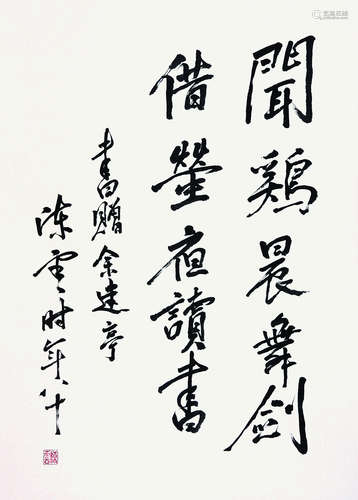 聞鷄晨舞劍
借螢夜讀書
書贈余建亭
陳雲時年八十